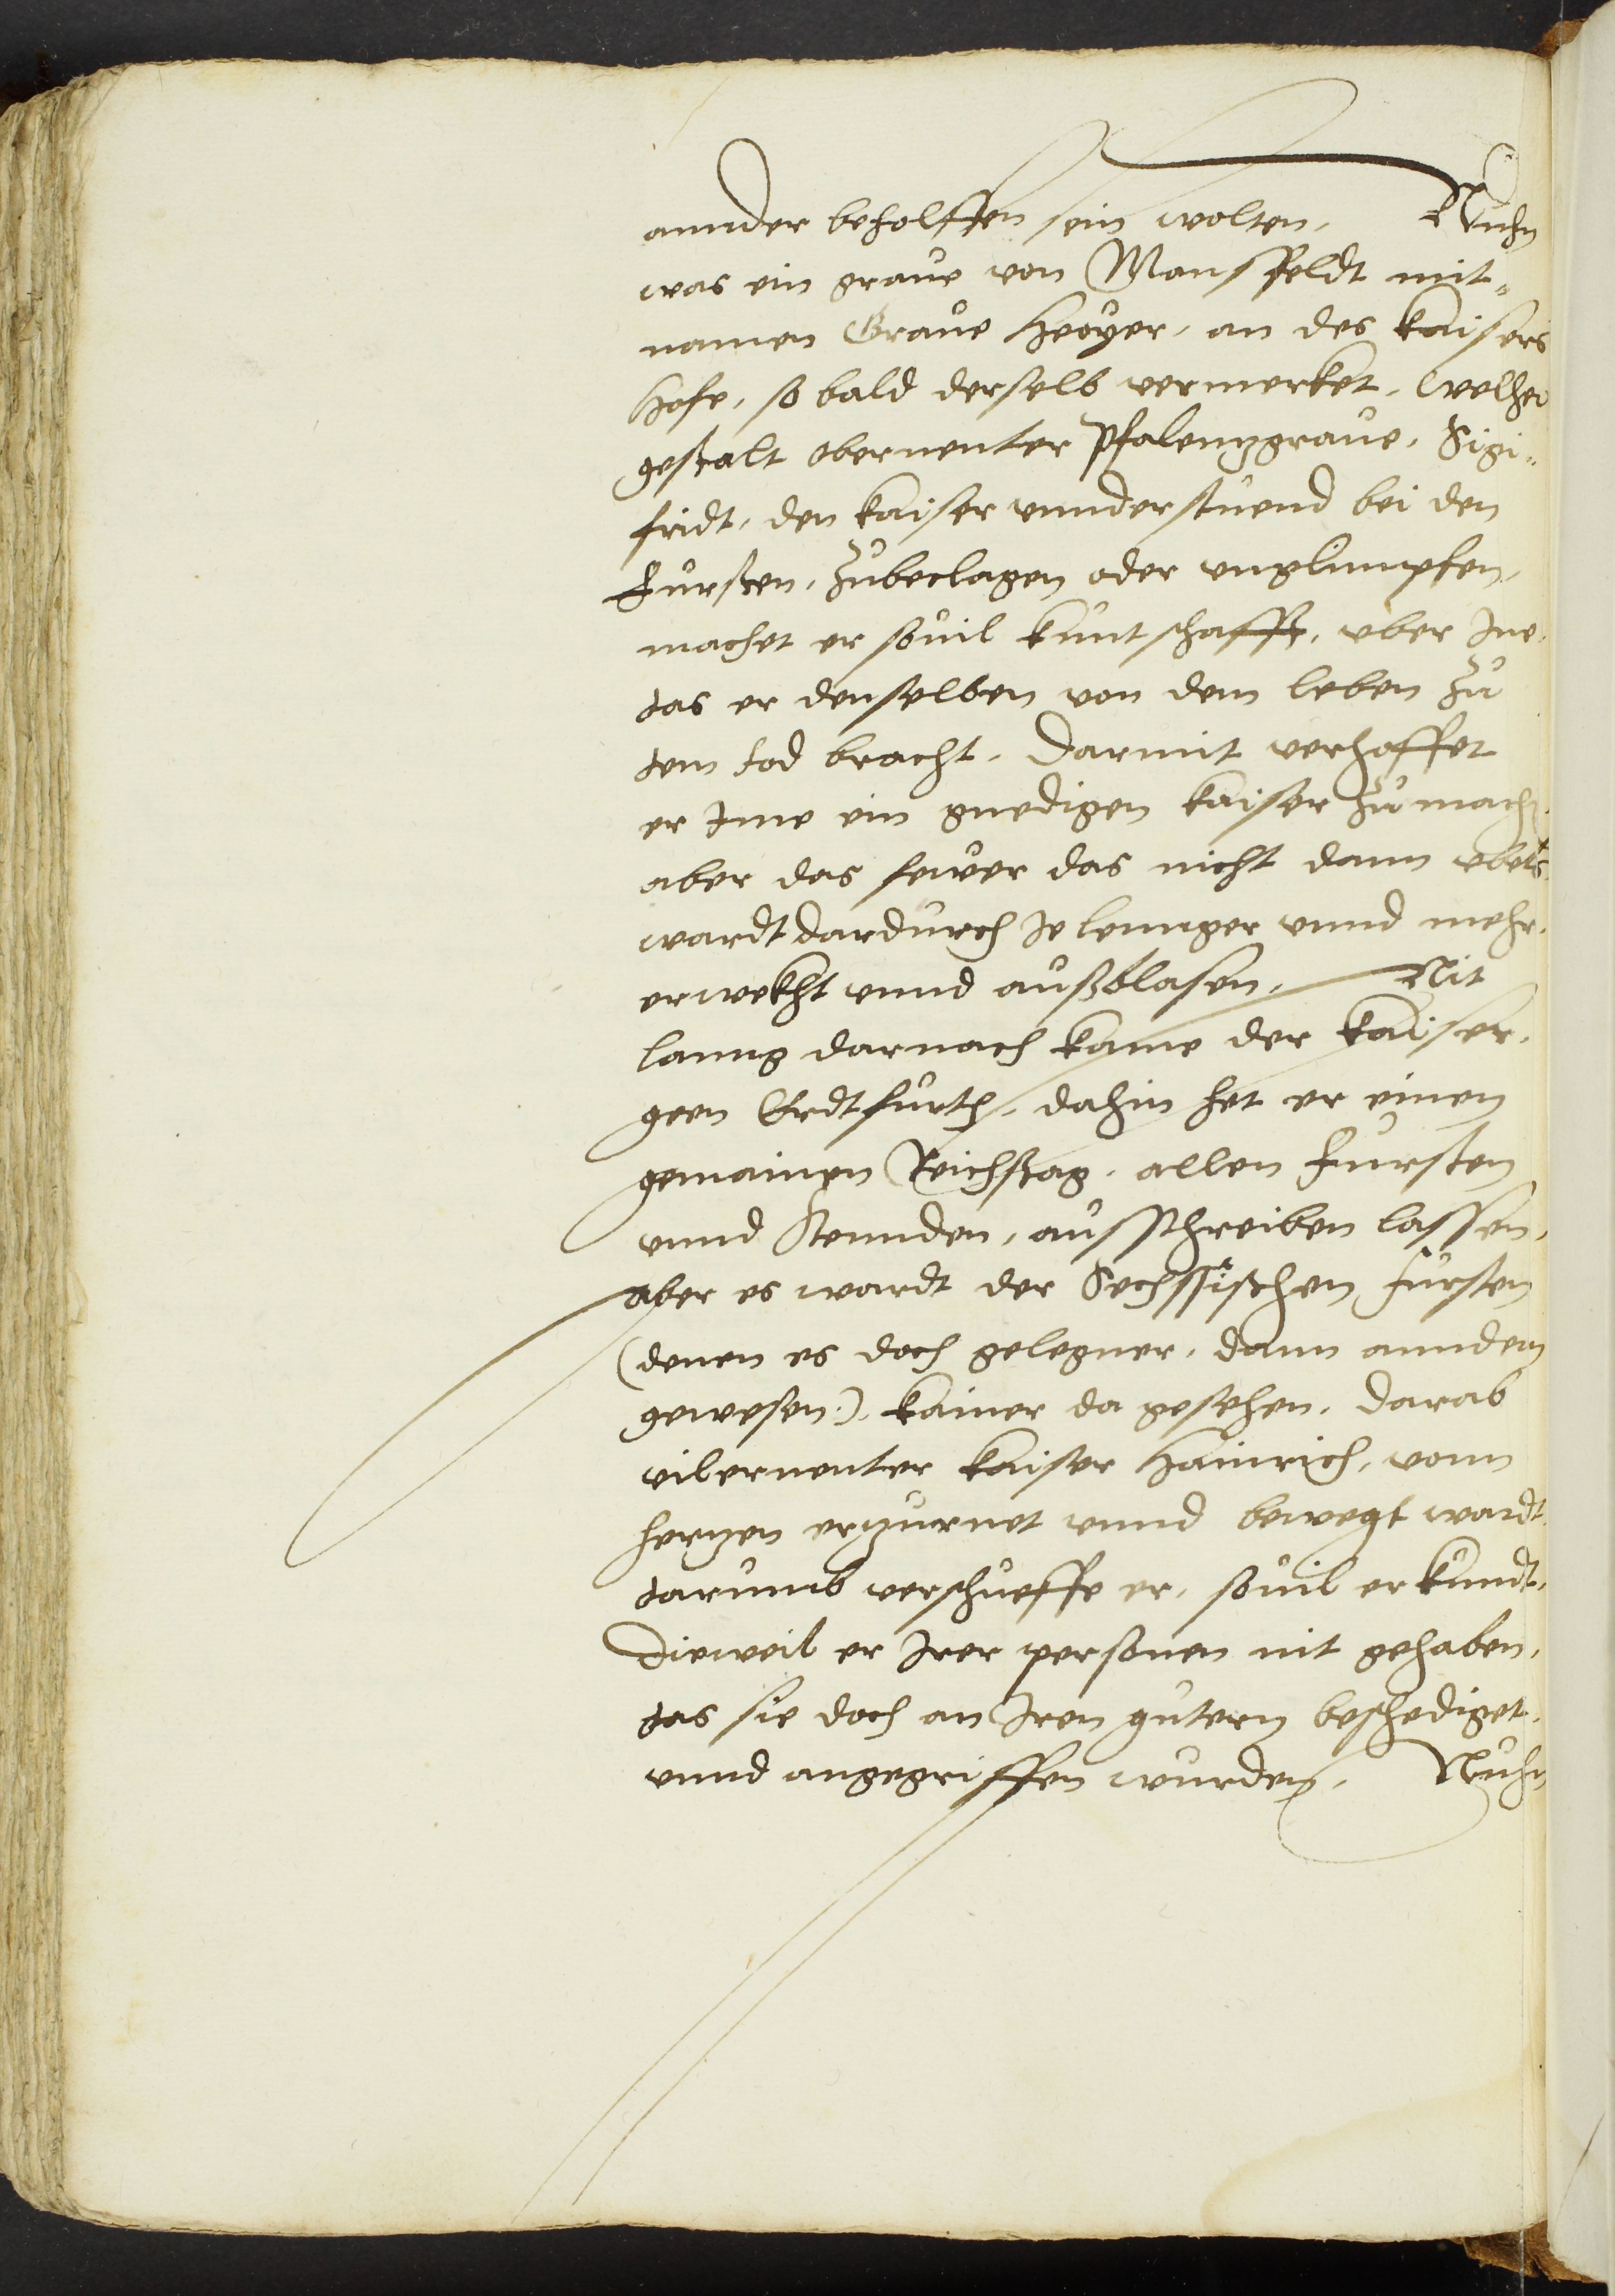 annder beholffen sein wolten, Nuhn
was ein graue von Mansfeldt mit„
namen Graue Heoyer, an des kaisers
Hofe, so bald derselb vermerket, welher
gestalt obernenter Pfalenzgraue, Sigi„
fridt, den kaiser vnnderstuend bei den
Fursten, zubeclagen oder vnglimpfen,
machet er souil kuntschafft, vber Ine,
das er denselben von dem leben zu
dem tod bracht, Darmit verhoffet
er Ime ein gnedigen kaiser zu mach
aber das fewer das nicht dann vbels
wardt dardurch Je lennger vnnd mehr,
erwekht vnnd außblasen, Nit
lanng darnach kame der kaiser,
geen Erdtfurth, dahin het er einen
gemainen Reichstag, allen Fursten
vnnd Stennden, ausschreiben lassen,
aber es wardt der Sechssischen Fürsten
(denen es doch gelegner, dann anndern
gewesen:), kainer da gesehen, Darab
vilernenter kaiser Hainrich, vonn
herzen erzurnet vnnd bewegt wardt,
darumb verschueffe er, souil er kundt,
Dieweil er Irer personen nit gehaben,
das sie doch an Iren gutern beschediget,
vnnd angegriffen wurden, Nuhn